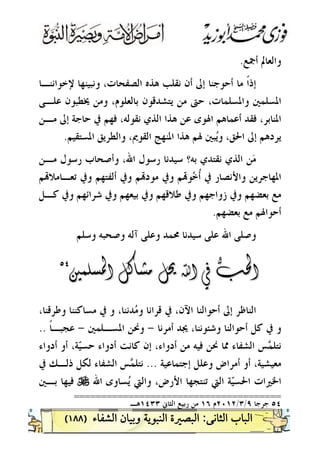 أمراض الأمة وبصيرة النبوة
فوزى محمد أبوزيد
والعالم أجمع.
إذاً ما أحوجنا إلى أن نقلب هذه الصفحات، ونبينها لإخواننـــا
المسلمين والمسلمات، حتى من يتشدقون بالعلوم، ومن يخطبون علـــى
المنابر، فقد أعماهم الهوى عن هذا الذي نقوله، فهم في حاجة إلى مـــن
يردهم إلى الحق، ويُبين لهم هذا المنهج القويم، والطريق المستقيم.
مَن الذي نقتدي به؟ سيدنا رسول الله، وأصحاب رسول مـــن
المهاجرين والأنصار في أُخُوتهم وفي مودتهم وفي ألفتهم وفي تعـــاملاتهم
مع بعضهم وفي زواجهم وفي طلاقهم وفي بيعهم وفي شرائهم وفي كـــل
أحوالهم مع بعضهم.
وصلى الله على سيدنا محمد وعلى آله وصحبه وسلم
الحبُّ في الله يحل مشاكل المسلمين ٥٤
الناظر إلى أحوالنا الآن، في قرانا ومُدننا، و في مساكننا وطرقنا،
و في كل أحوالنا وشئوننا، يجد أمرنا – ونحن المســـلمين – عجبـــاً ..
نتلمَّس الشفاء مما نحن فيه من أدواء، إن كانت أدواء حسيَّة، أو أدواء
معيشية، أو أمراض وعلل إجتماعية ... نتلمَّس الشفاء لكل ذلـــك في
الخيرات الحسيّة التي تنتجها الأرض، والتي يُساوى الله ﷻ فيها بـــين
٥٤ جرجا ٢٠١٢/٣/٩م ١٦ من ربيع الثاني ١٤٣٣هـ
الباب الثانى: البصيرة النبوية وبيان الشفاء (١٨٨)